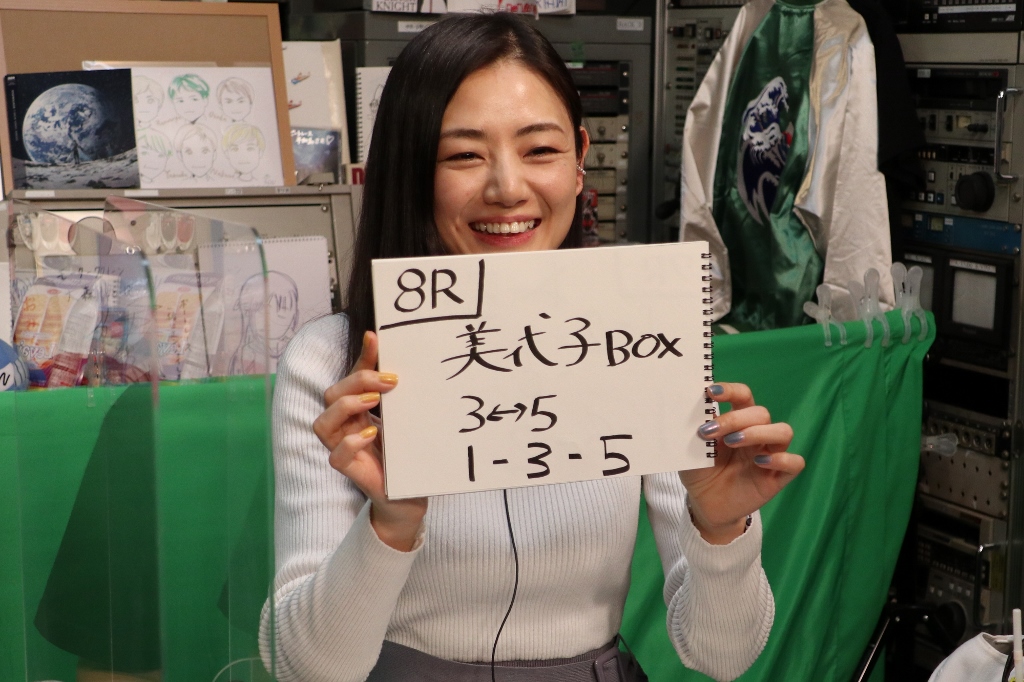 KNIGHT
8R
美代子BOX
3↔5
1-3-5